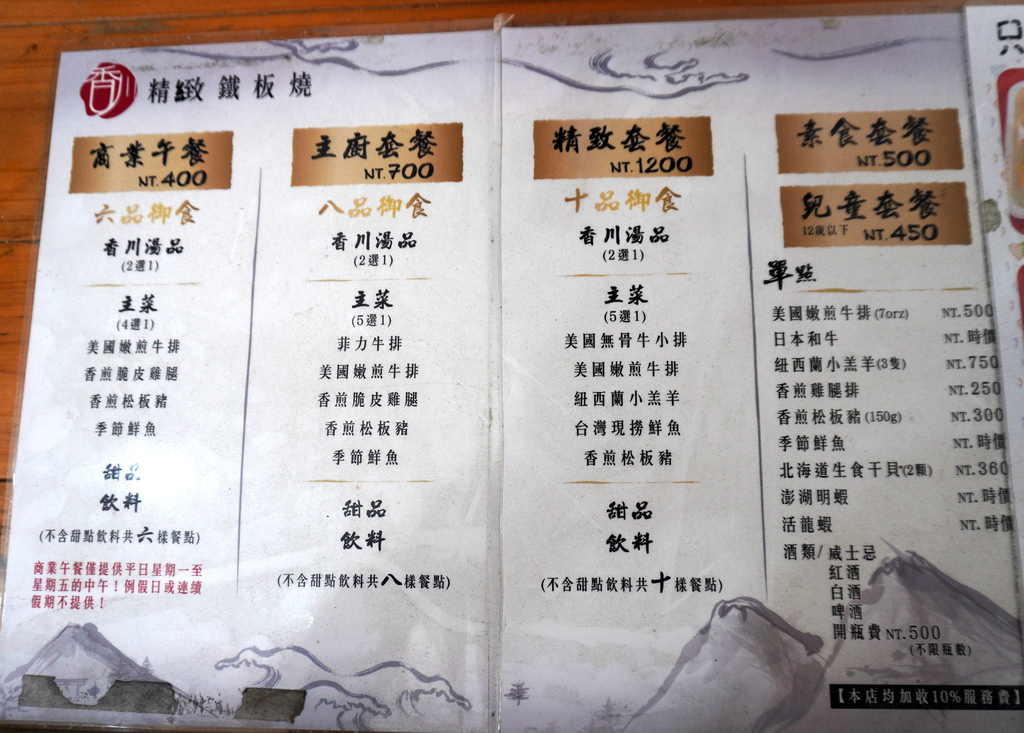 香川
精緻鐵板燒
商業午餐
NT.400
六品御食
香川湯品
(2選1)
主菜
(4選1)
美國嫩煎牛排
香煎脆皮雞腿
香煎松板豬
季節鮮魚
甜品
飲料
(不含甜點飲料共六樣餐點)
商業午餐僅提供平日星期一至
星期五的中午！例假日或連續
假期不提供！
主廚套餐
NT.700
八品御食
香川湯品
(2選1)
主菜
(5選1)
菲力牛排
美國嫩煎牛排
香煎脆皮雞腿
香煎松板豬
季節鮮魚
甜品
飲料
(不含甜點飲料共八樣餐點)
精致套餐
NT.1200
十品御食
香川湯品
(2選1)
主菜
(5選1)
美國無骨牛小排
美國嫩煎牛排
紐西蘭小羔羊
台灣現撈鮮魚
香煎松板豬
甜品
飲料
(不含甜點飲料共十樣餐點)
素食套餐
NT.500
兒童套餐
12歲以下 NT.450
單點
美國嫩煎牛排(7orz) NT.500
日本和牛 NT.時價
紐西蘭小羔羊(3隻) NT.750
香煎雞腿排 NT.250
香煎松板豬(150g) NT.300
季節鮮魚 NT.時價
北海道生食干貝(2顆) NT.360
澎湖明蝦 NT.時價
活龍蝦 NT.時價
酒類/威士忌
紅酒
白酒
啤酒
開瓶費NT.500
(不限瓶數)
【本店均加收10%服務費】